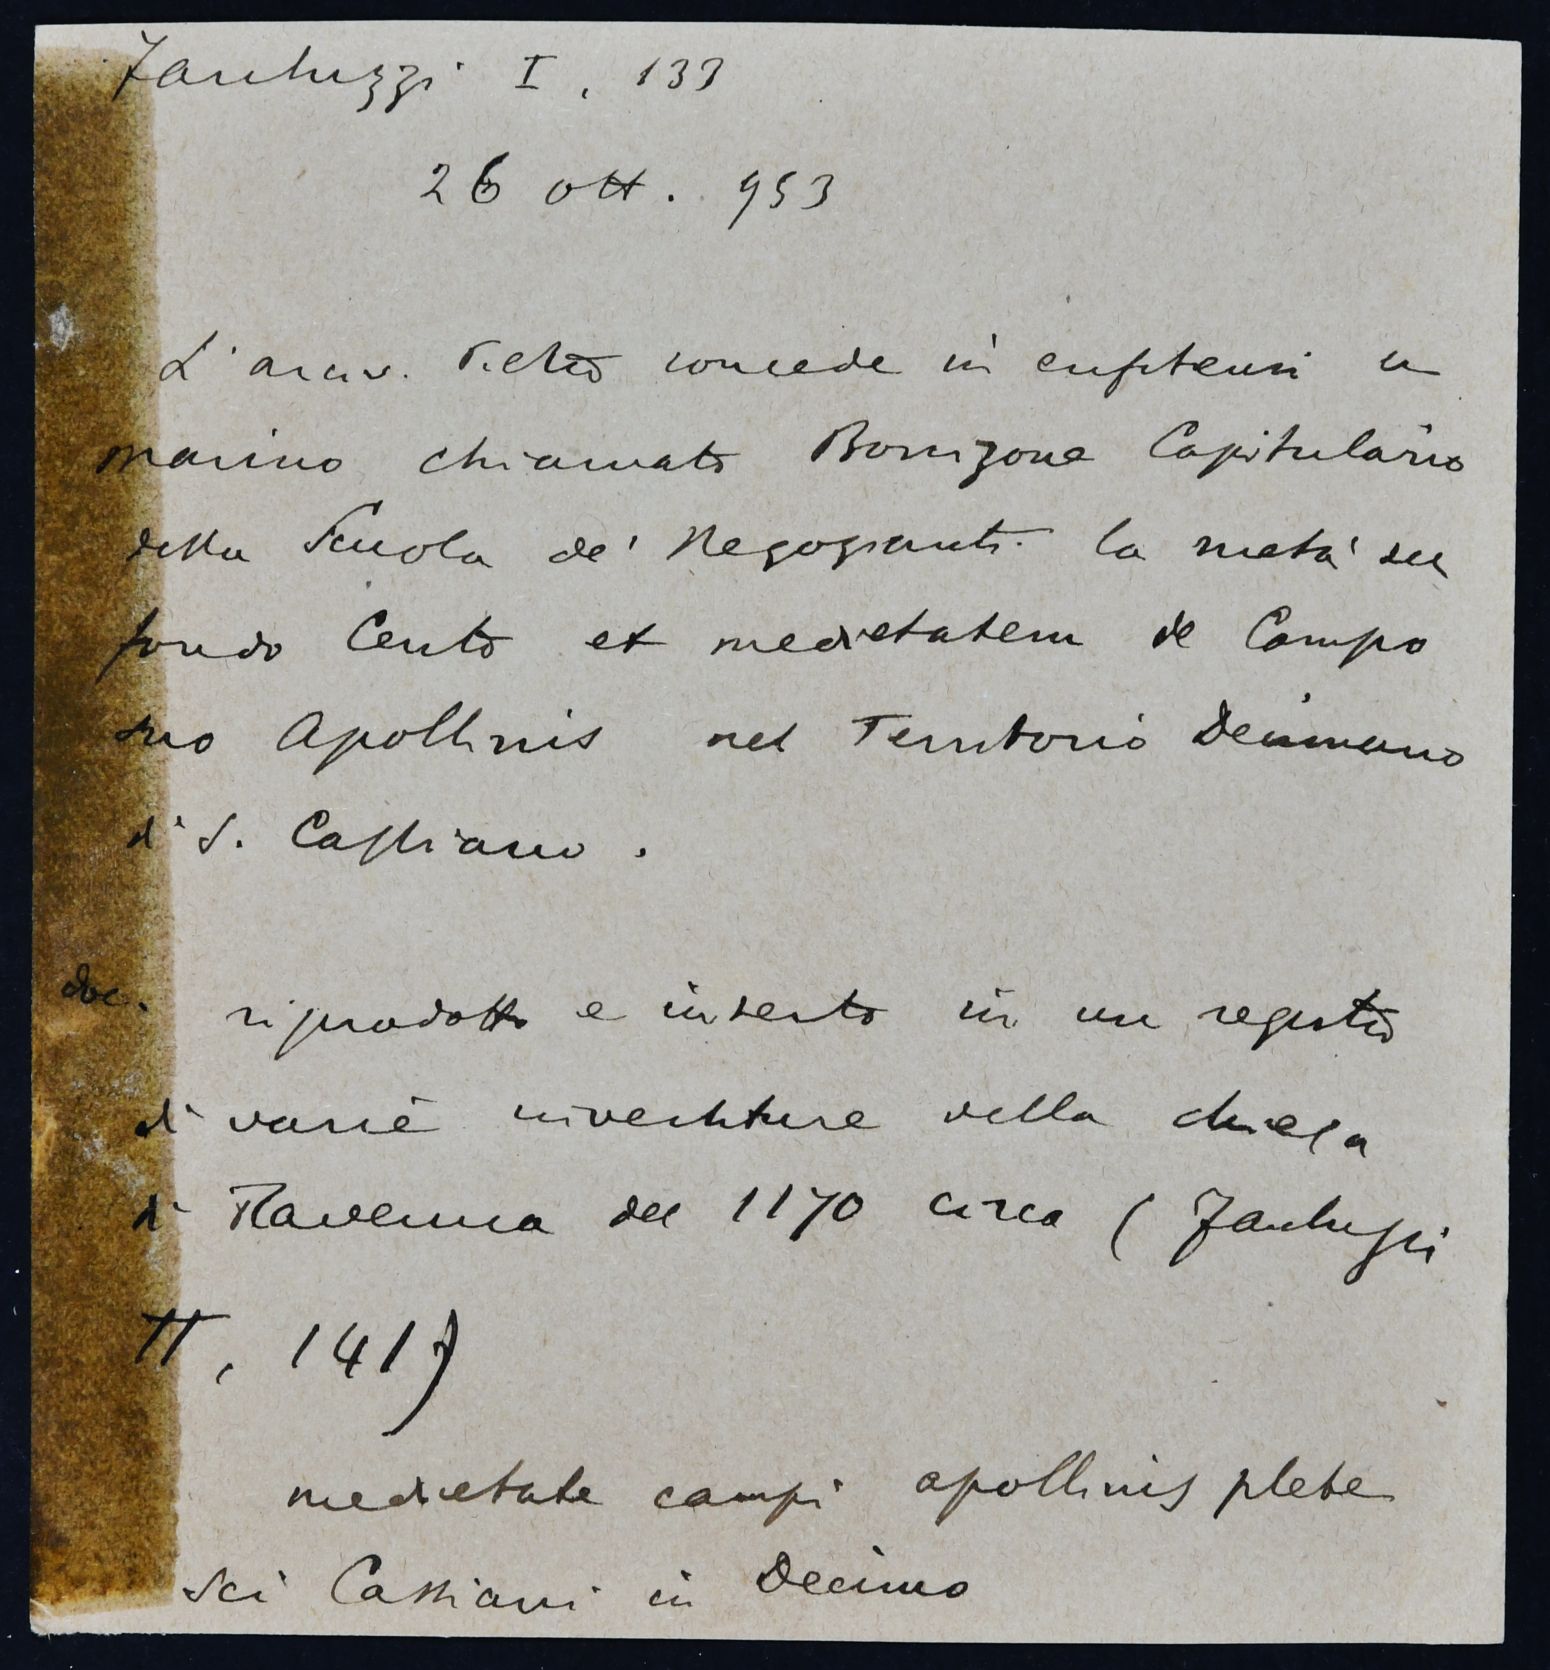 Fantuzzi I, 133
26 ott. 953
L'arciv. Pietro concede in enfiteusi a
Marino chiamato Bonizone Capitulario
della Scuola de' Negozianti la metà del
fondo Cento et medietatem de Campo
suo Apollinis nel Territorio Decimano
di S. Cassiano.
doc. riprodotto e inserto in un registro
di varie investiture della chiesa
di Ravenna del 1170 circa (Fantuzzi
II, 141)
medietate campi apollinis plebe
Sci Cassiani in Decimo